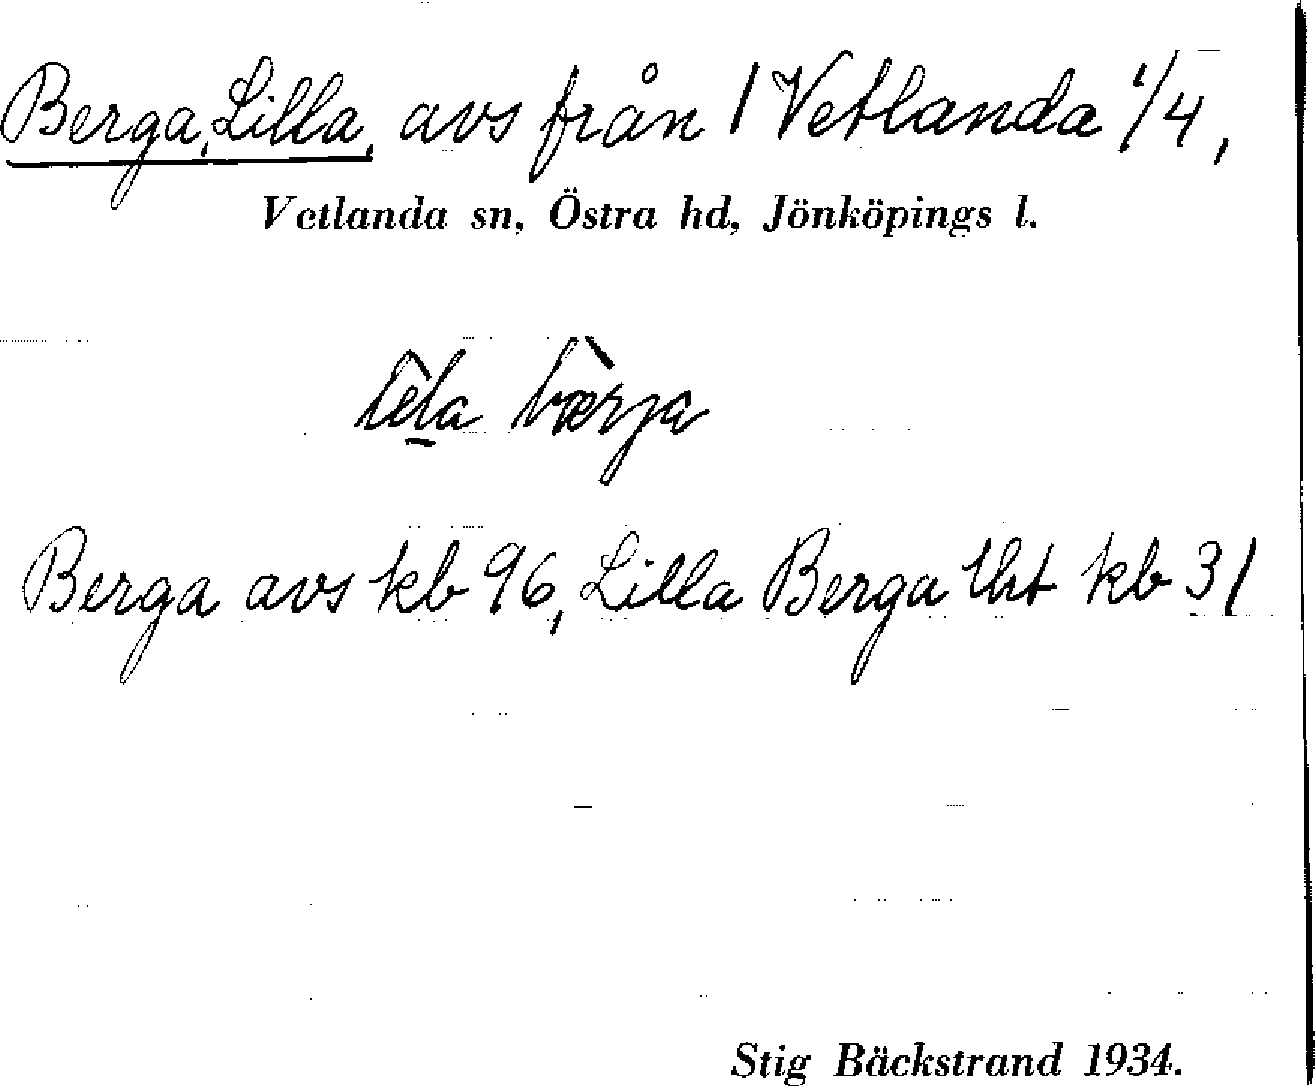 Berga, Lilla, avs från 1 Vetlanda 1/4,
Vetlanda sn, Östra hd, Jönköpings l.
Berga avs kb 96, Lilla Berga lht kb 31
Stig Bäckstrand 1934.